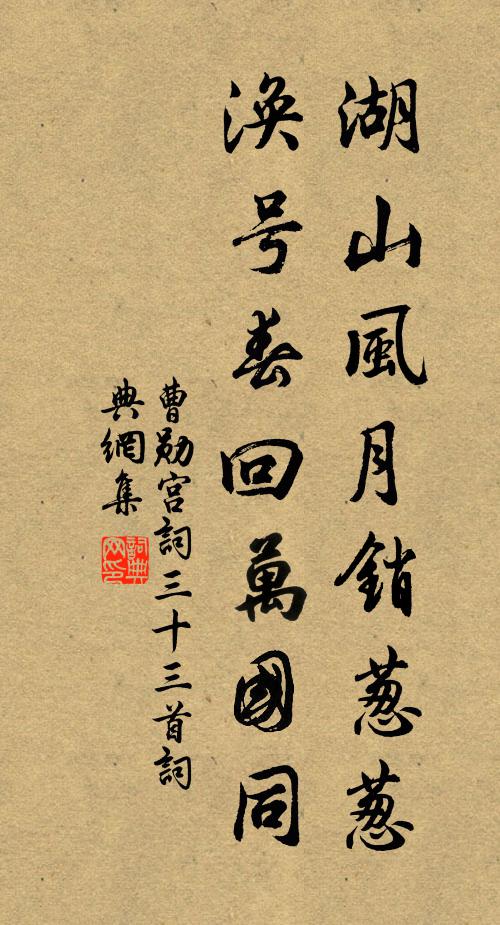 湖山風月銷葱葱
渙号春回萬國同
曹勛宫詞三十三首詞
典網集
詞典
网印